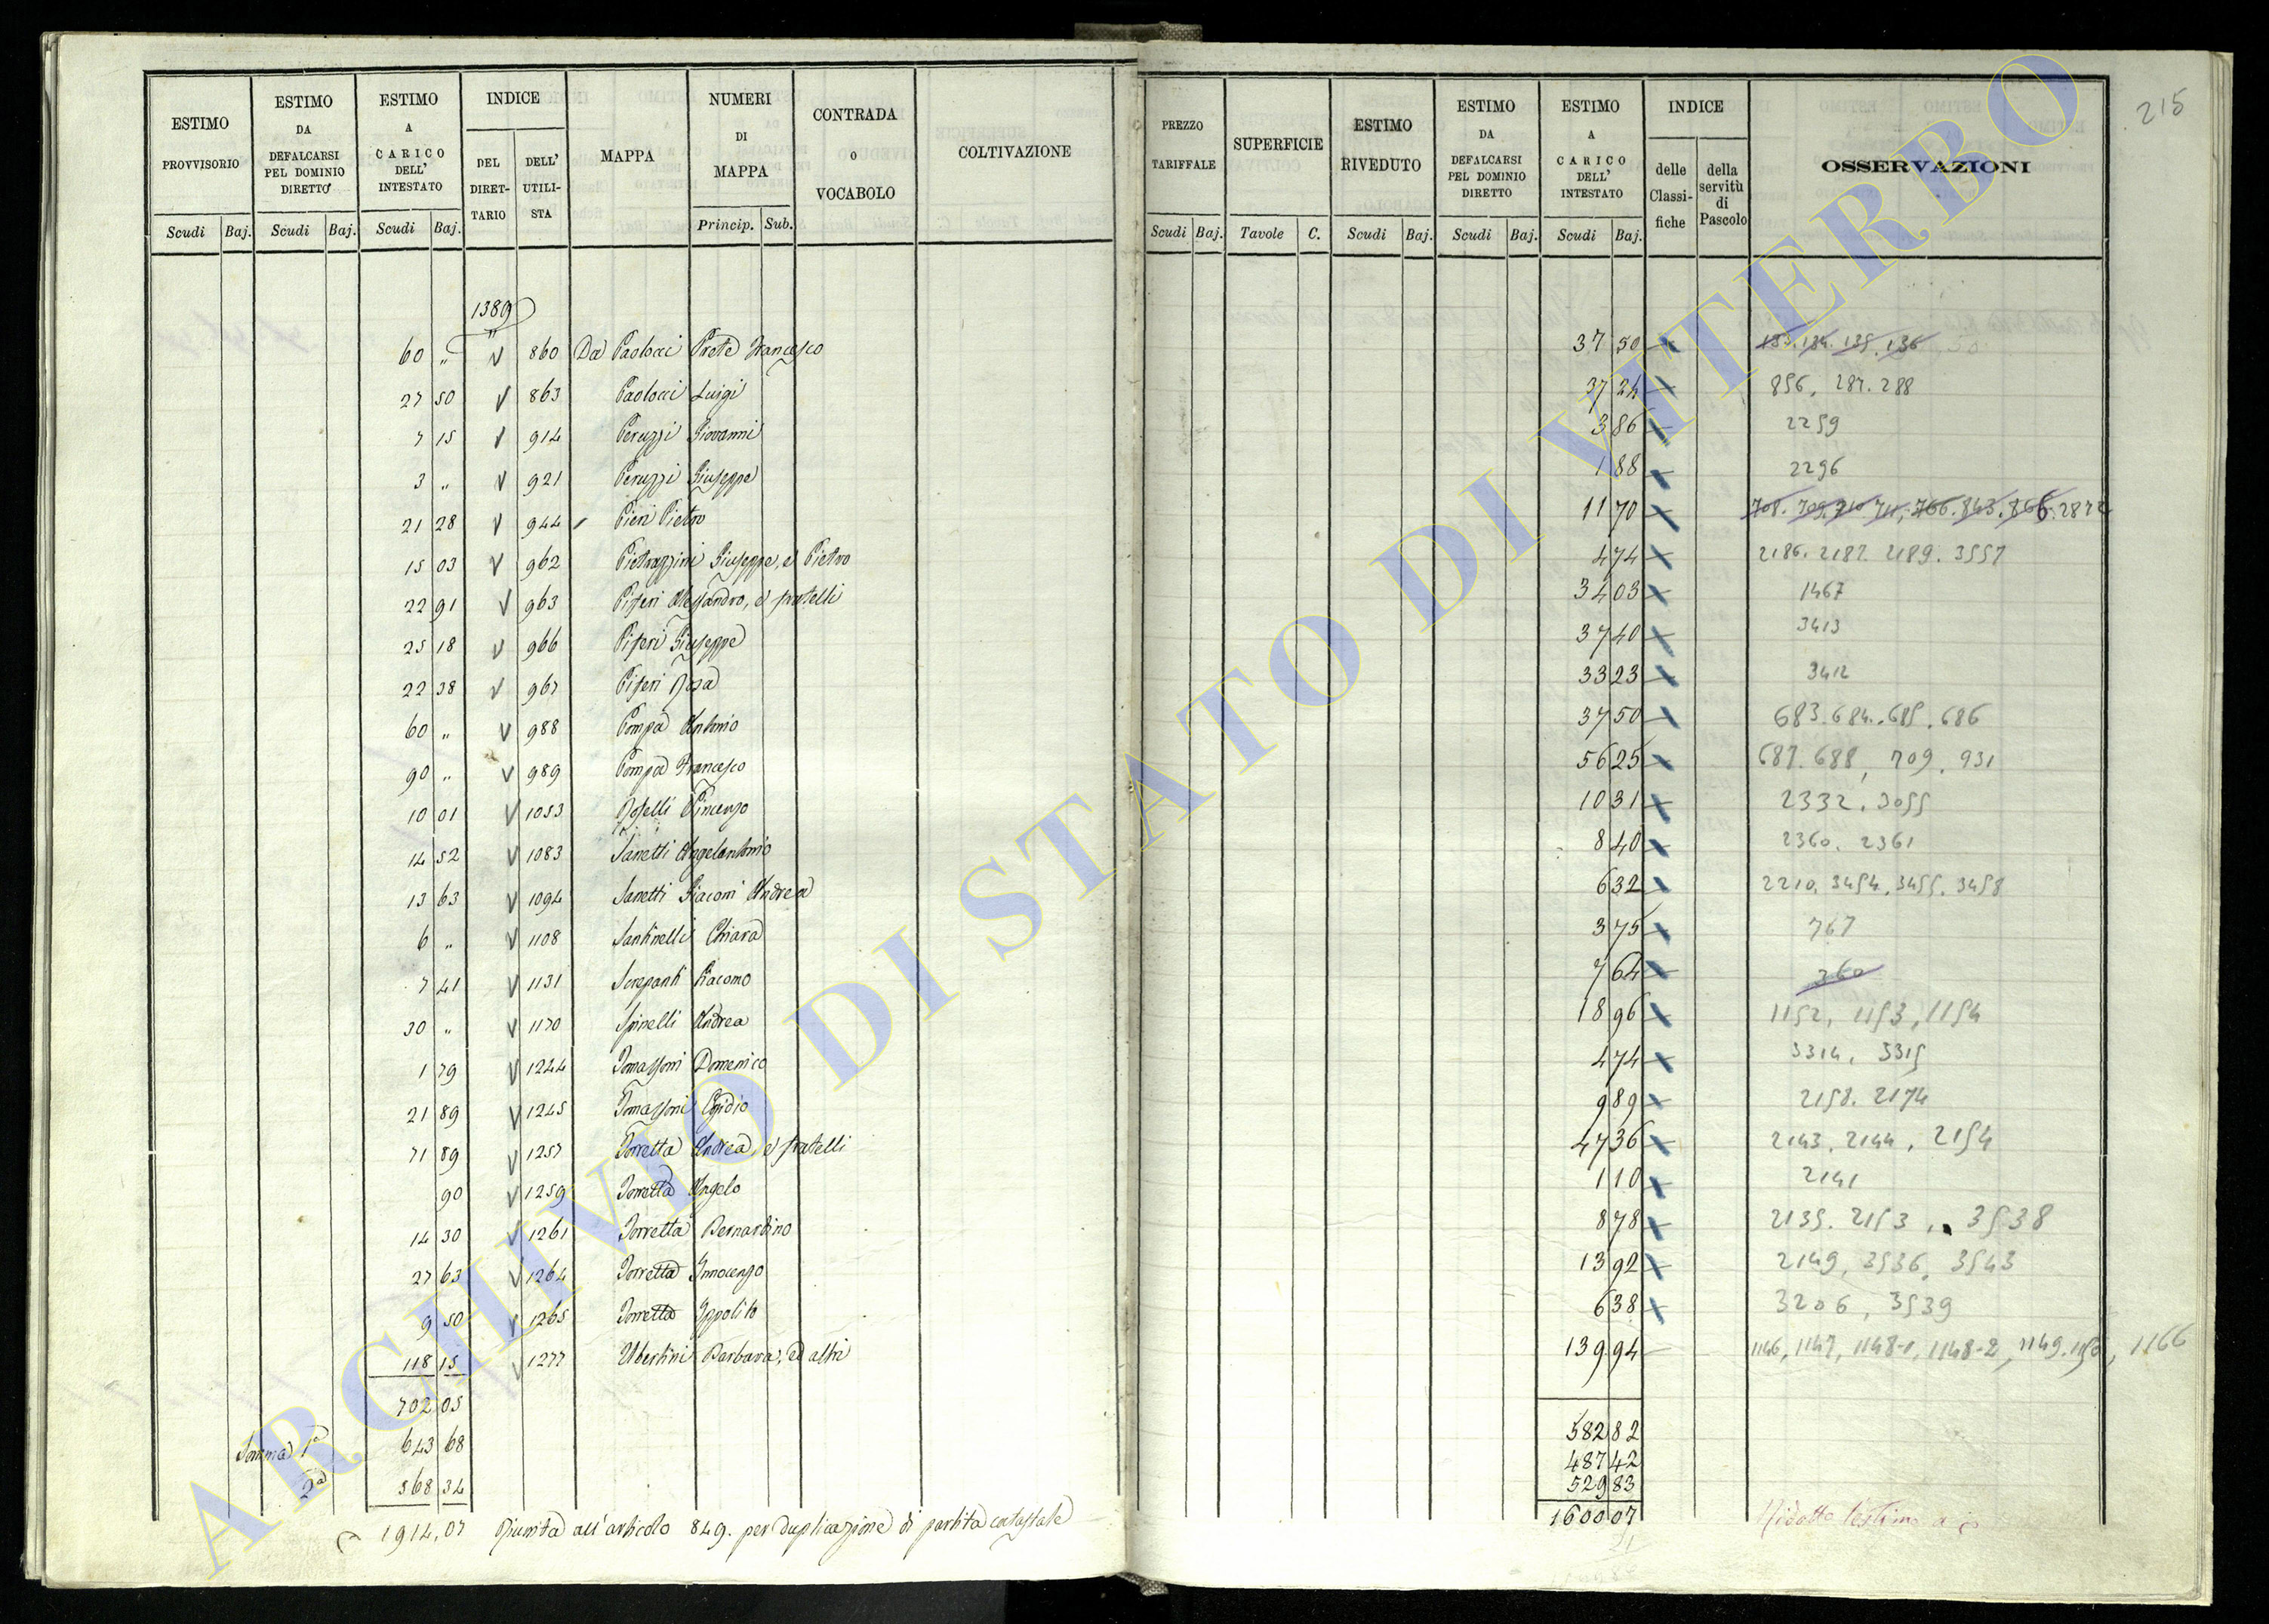 215
ESTIMO PROVVISORIO | ESTIMO DA DEFALCARSI PEL DOMINIO DIRETTO | ESTIMO A CARICO DELL' INTESTATO | INDICE DEL DIRET-TARIO | DELL' UTILI-STA | MAPPA | NUMERI DI MAPPA | CONTRADA O VOCABOLO | COLTIVAZIONE | PREZZO TARIFFALE | SUPERFICIE | ESTIMO RIVEDUTO | ESTIMO DA DEFALCARSI PEL DOMINIO DIRETTO | ESTIMO A CARICO DELL' INTESTATO | INDICE delle Classi-fiche | della servitù di Pascolo | OSSERVAZIONI
Scudi Baj. | Scudi Baj. | Scudi Baj. | Princip. Sub. | Scudi Baj. | Tavole C. | Scudi Baj. | Scudi Baj. | Scudi Baj.
1389
60 " " V 860 Da Paolocci Prete Francesco 37 50 134. 135. 136
27 50 V 863 Paolocci Luigi 37 24 856, 287. 288
7 15 V 914 Peruzzi Giovanni 3 86 2259
3 " V 921 Peruzzi Giuseppe 1 88 2296
21 28 V 944 Pieri Pietro 11 70 708. 709. 710. 711, 766. 843. 866. 2872
15 03 V 962 Pietrazzini Giuseppe, e Pietro 4 74 2186. 2187. 2189. 3557
22 91 V 963 Piferi Alessandro, e fratelli 34 03 1467
25 18 V 966 Piferi Giuseppe 37 40 3413
22 38 V 967 Piferi Rosa 33 23 3412
60 " V 988 Pompa Antonio 37 50 683. 684. 685. 686
90 " V 989 Pompa Francesco 56 25 687. 688, 709. 931
10 01 V 1053 Roselli Vincenzo 10 31 2332. 3055
14 52 V 1083 Sanetti Angelantonio 8 40 2360. 2361
13 63 V 1094 Sanetti Giacomi Andrea 6 32 2210. 3454, 3455. 3458
6 " V 1108 Santinelli Chiara 3 75 767
7 41 V 1131 Screpanti Giacomo 7 64 360
30 " V 1170 Spinelli Andrea 18 96 1152, 1153, 1154
1 79 V 1244 Tomassoni Domenico 4 74 3314, 3315
21 89 V 1245 Tomassoni Egidio 9 89 2158. 2174
71 89 V 1257 Torretta Andrea, e fratelli 47 36 2143, 2144, 2154
90 V 1259 Torretta Angelo 1 10 2141
14 30 V 1261 Torretta Bernardino 8 78 2135. 2153, 3538
27 63 V 1264 Torretta Innocenzo 13 92 2149, 3536, 3543
9 50 V 1265 Torretta Ippolito 6 38 3206, 3539
118 15 V 1277 Ubertini Barbara, ed altri 139 94 1146, 1147, 1148-1, 1148-2, 1149. 1150, 1166
702 05 582 82
Somma 1ª 643 68 487 42
2ª 568 34 529 83
1914,07 Riunita all'articolo 849. per duplicazione di partita catastale 1600 07 Ridotto l'estimo a
ARCHIVIO DI STATO DI VITERBO